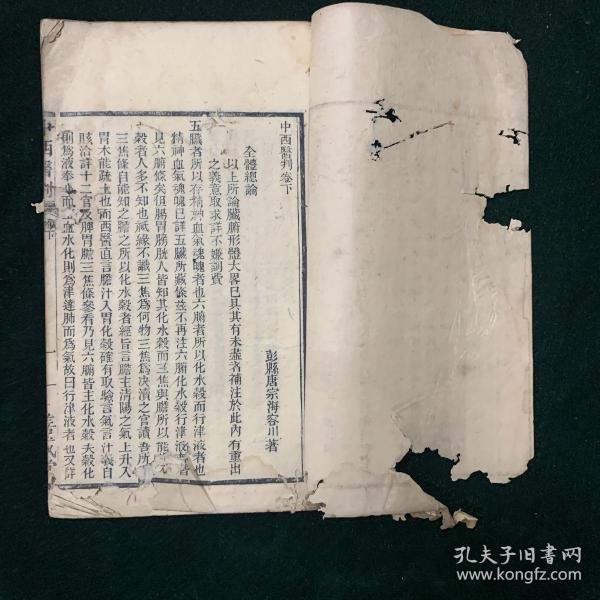 中西醫判卷下
彭縣唐宗海容川著
全體總論
以上所論臟腑形體大畧已具其有未盡者補注於此內有重出
之義意取求詳不嫌詞費
五臟者所以存精神血氣魂魄者也六腑者所以化水穀而行津液者也
精神血氣魂魄已詳五臟所藏條茲不再注六腑化水穀行津液者
見六腑條矣但腸胃膀胱人皆知其化水穀而三焦與膽所以能
穀者人多不知也祗緣不識三焦爲何物三焦爲決瀆之官請吾所
三焦條自能知之膽之所以化水穀者經旨言膽主清陽之氣上升入
胃木能疏土也而西醫直言膽汁入胃化穀確有取驗言氣言汁義自
賅洽詳十二官及脾胃膽三焦條參看乃見六腑皆主化水穀夫穀化
則爲液奉心而血水化則爲津達肺而爲氣故曰行津液者也又詳
中西醫判
卷下
一
孔夫子旧书网
www.kongfz.com